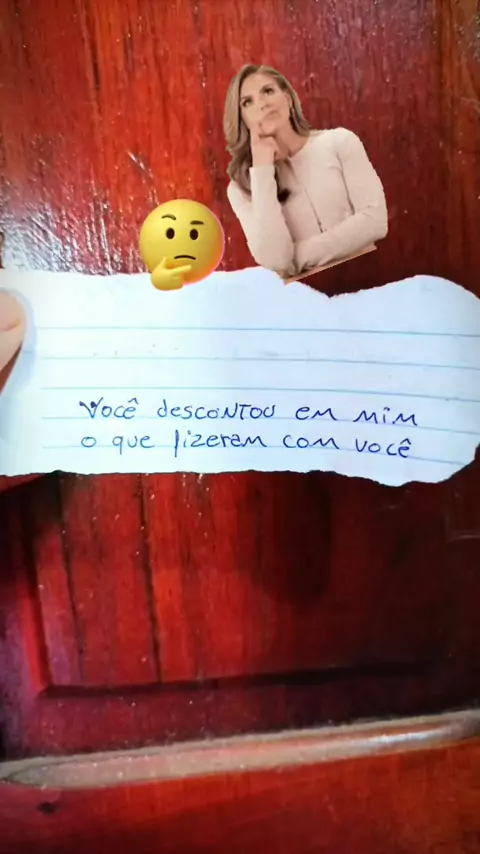 Você descontou em mim
o que fizeram com você